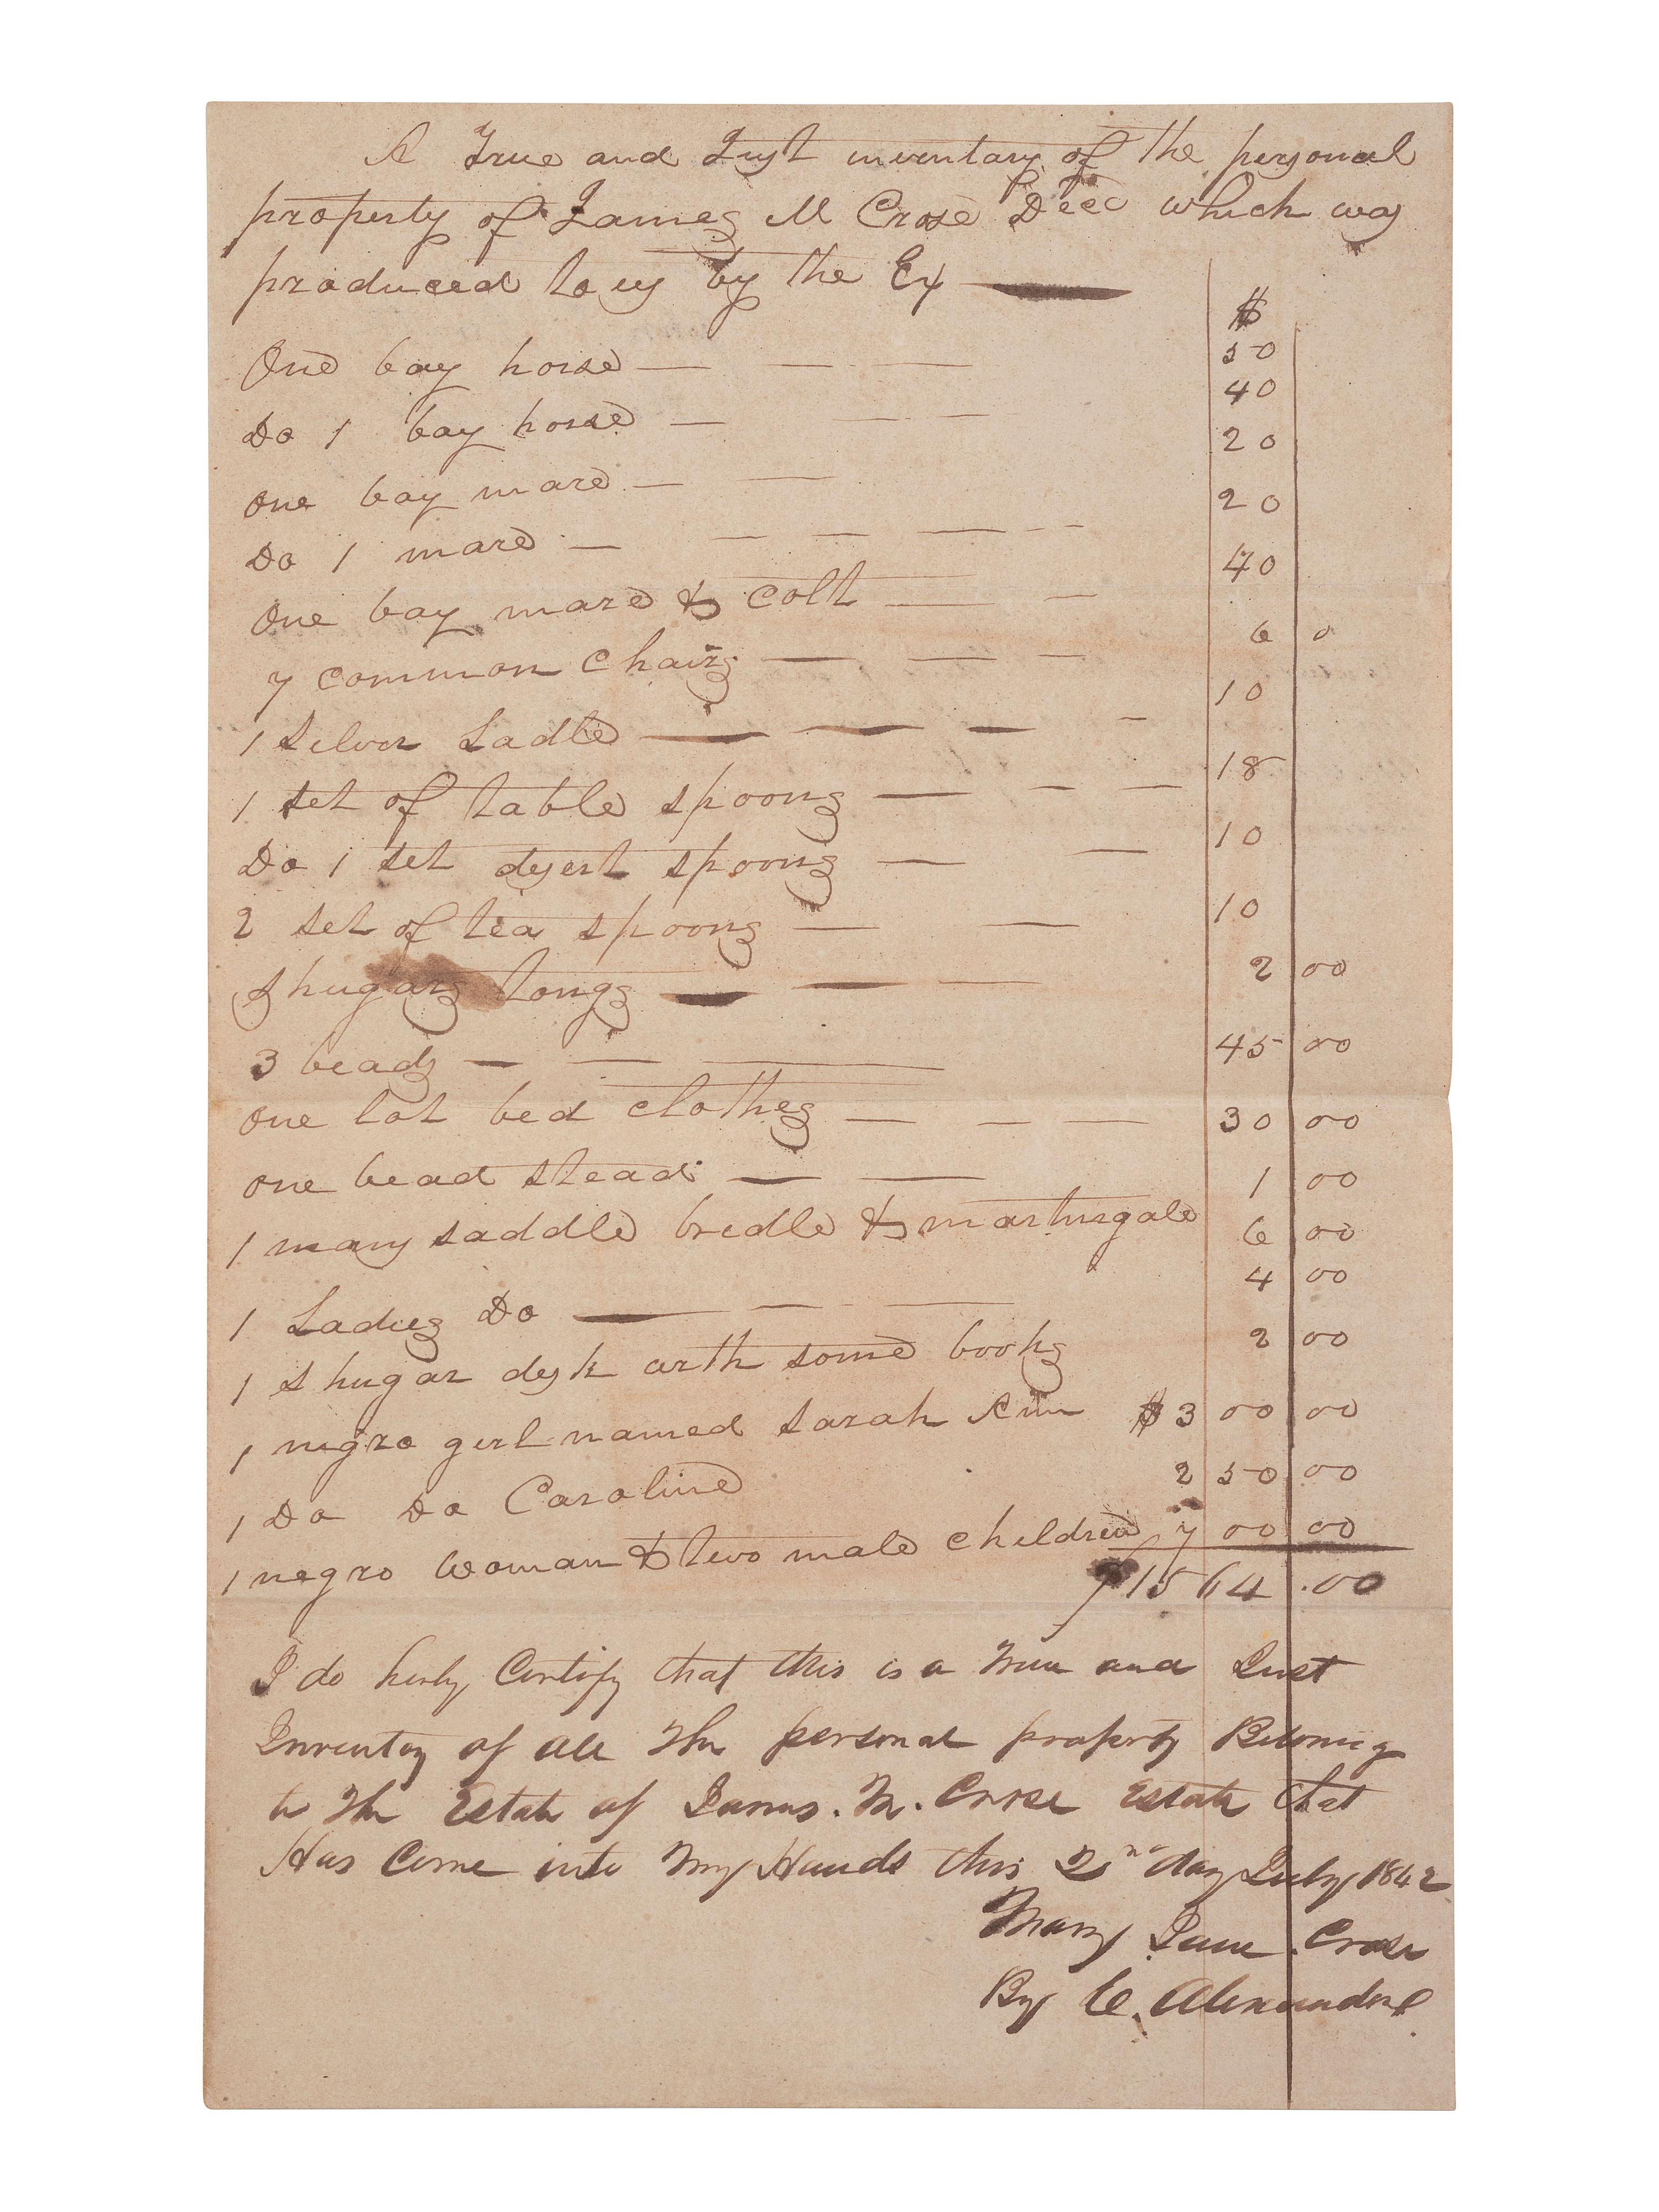 A True and Just inventary of the personal
property of James M Crose Decd which was
produced to us by the Ex
$
One bay horse — — — 50
Do 1 bay horse — — — 40
One bay mare — — 20
Do 1 mare — — — — — 20
One bay mare & colt — — 40
7 common Chairs — — — 6 0
1 Silver Ladle — — — — 10
1 set of table spoons — — — 18
Do 1 set desert spoons — — 10
2 set of tea spoons — — 10
Shugars tongs — — — 2 00
3 beads — — — 45 00
One lot bed clothes — — — 30 00
One bead stead — — 1 00
1 mans saddle bridle & martingale 6 00
1 Ladies Do — — — 4 00
1 shugar desk with some books 2 00
1 negro girl named Sarah Ann $ 3 00 00
1 Do Do Caroline 2 50 00
1 negro woman & two male children 7 00 00
$1564.00
I do herby Certify that this is a True and Just
Inventoy of all The personal property Belonig
to The Estate of James. M. Crose Estate that
Has Come into My Hands this 2nd day July 1842
Mary Jane Crose
By C. Alexander